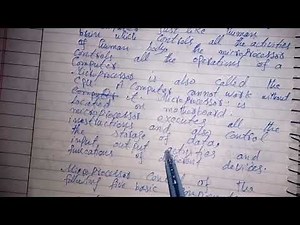 brain which controls all the activities
of human body the microprocessor
controls all the operations of a
Computer
Microprocessor is also called the
CPU. A Computer cannot work without
microprocessor is
located on motherboard.
microprocessor executes all the
instructions and give control
the storage of data,
input output activities and
functions of devices.
Microprocessor consist of the
five basic